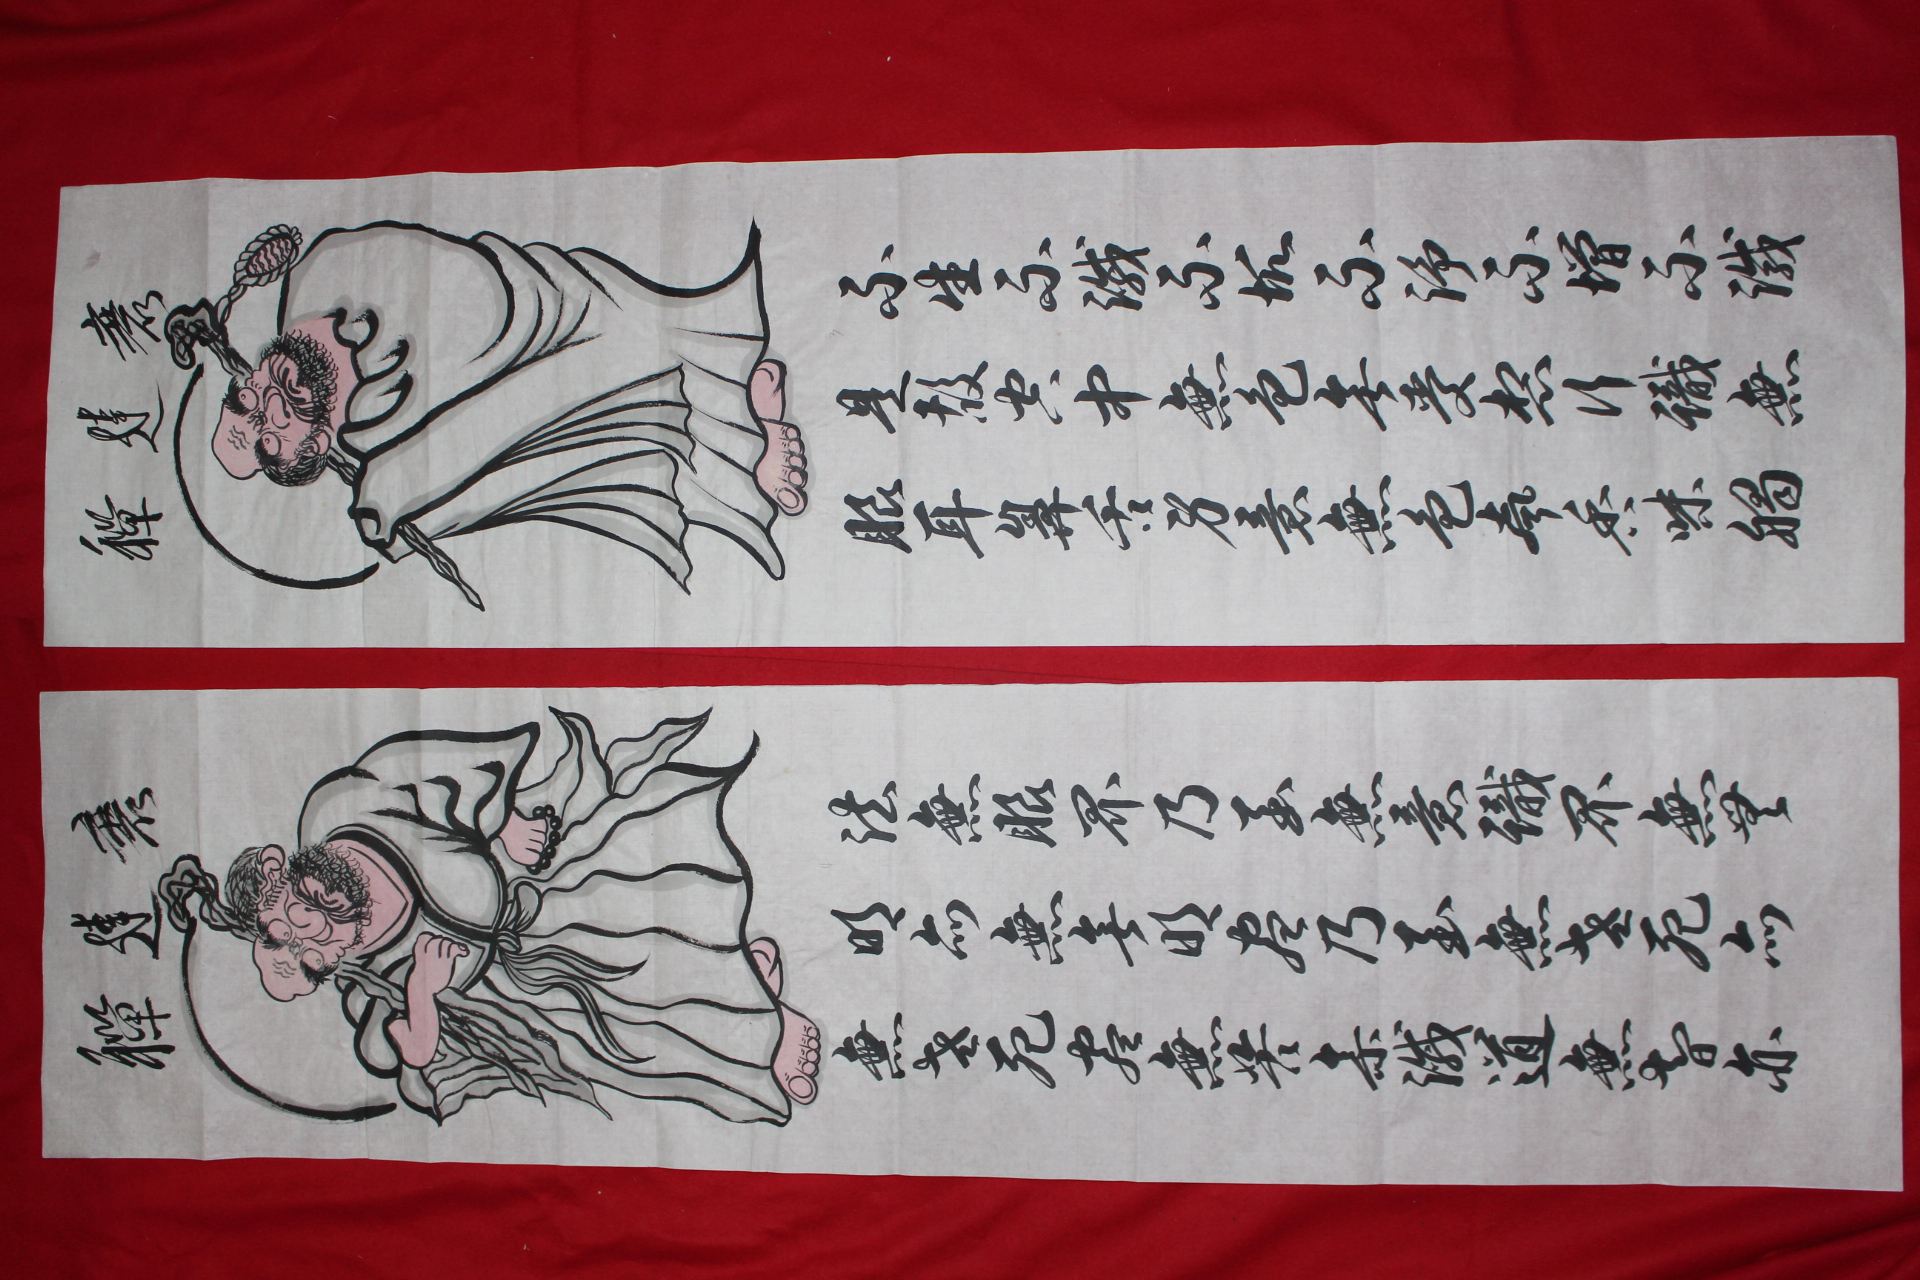 達禪
不生不滅不垢不淨不增不減
是故空中無色無受想行識無
眼耳鼻舌身意無色聲香味觸
達禪
法無眼界乃至無意識界無無
明亦無無明盡乃至無老死亦
無老死盡無苦集滅道無智亦